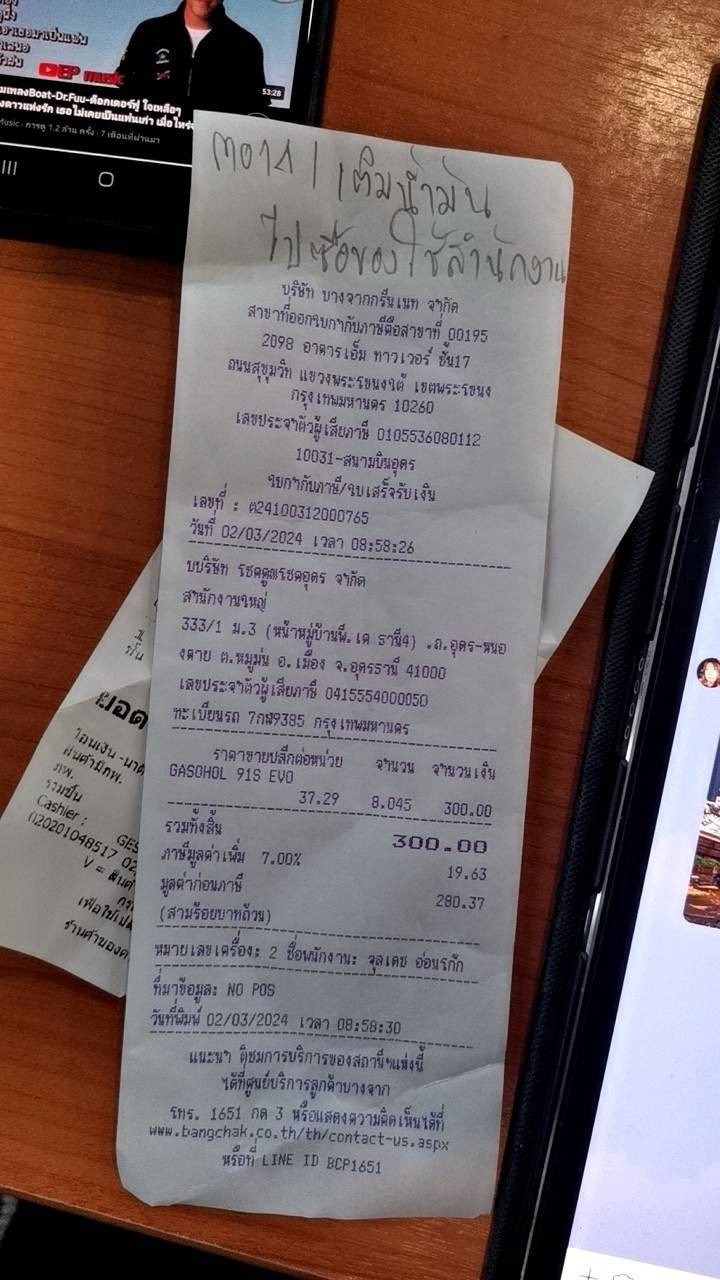 เอาเธอมาเป็นแฟน
EP music
53:28
มเพลงBoat-Dr.Fuu-ด็อกเตอร์ฟู ใจเหลือๆ
งดาวแห่งรัก เธอไม่เคยเป็นแฟนเก่า เมื่อไหร่
Music · การดู 1.2 ล้าน ครั้ง · 7 เดือนที่ผ่านมา
เติมน้ำมัน
ไปซื้อของใช้สำนักงาน
บริษัท บางจากกรีนเนท จำกัด
สาขาที่ออกใบกำกับภาษีคือสาขาที่ 00195
2098 อาคารเอ็ม ทาวเวอร์ ชั้น17
ถนนสุขุมวิท แขวงพระโขนงใต้ เขตพระโขนง
กรุงเทพมหานคร 10260
เลขประจำตัวผู้เสียภาษี 0105536080112
10031-สนามบินอุดร
ใบกำกับภาษี/ใบเสร็จรับเงิน
เลขที่ : ต24100312000765
วันที่ 02/03/2024 เวลา 08:58:26
บบริษัท โชคคูณโชคอุดร จำกัด
สำนักงานใหญ่
333/1 ม.3 (หน้าหมู่บ้านพี.เค ธานี4) .ถ.อุดร-หนอ
งคาย ต.หมูม่น อ.เมือง จ.อุดรธานี 41000
เลขประจำตัวผู้เสียภาษี 0415554000050
ทะเบียนรถ 7กฬ9385 กรุงเทพมหานคร
ราคาขายปลีกต่อหน่วย จำนวน จำนวนเงิน
GASOHOL 91S EVO
37.29 8.045 300.00
รวมทั้งสิ้น 300.00
ภาษีมูลค่าเพิ่ม 7.00% 19.63
มูลค่าก่อนภาษี 280.37
(สามร้อยบาทถ้วน)
หมายเลขเครื่อง: 2 ชื่อพนักงาน: จุลเดช อ่อนรักิก
ที่มาข้อมูล: NO POS
วันที่พิมพ์ 02/03/2024 เวลา 08:58:30
แนะนำ ติชมการบริการของสถานีฯแห่งนี้
ได้ที่ศูนย์บริการลูกค้าบางจาก
โทร. 1651 กด 3 หรือแสดงความคิดเห็นได้ที่
www.bangchak.co.th/th/contact-us.aspx
หรือที่ LINE ID BCP1651
ยอด
โอนเงิน
สินค้ามีภพ.
ภพ.
รวมชิ้น
Cashier :
02020104851​7
V = สินค้า